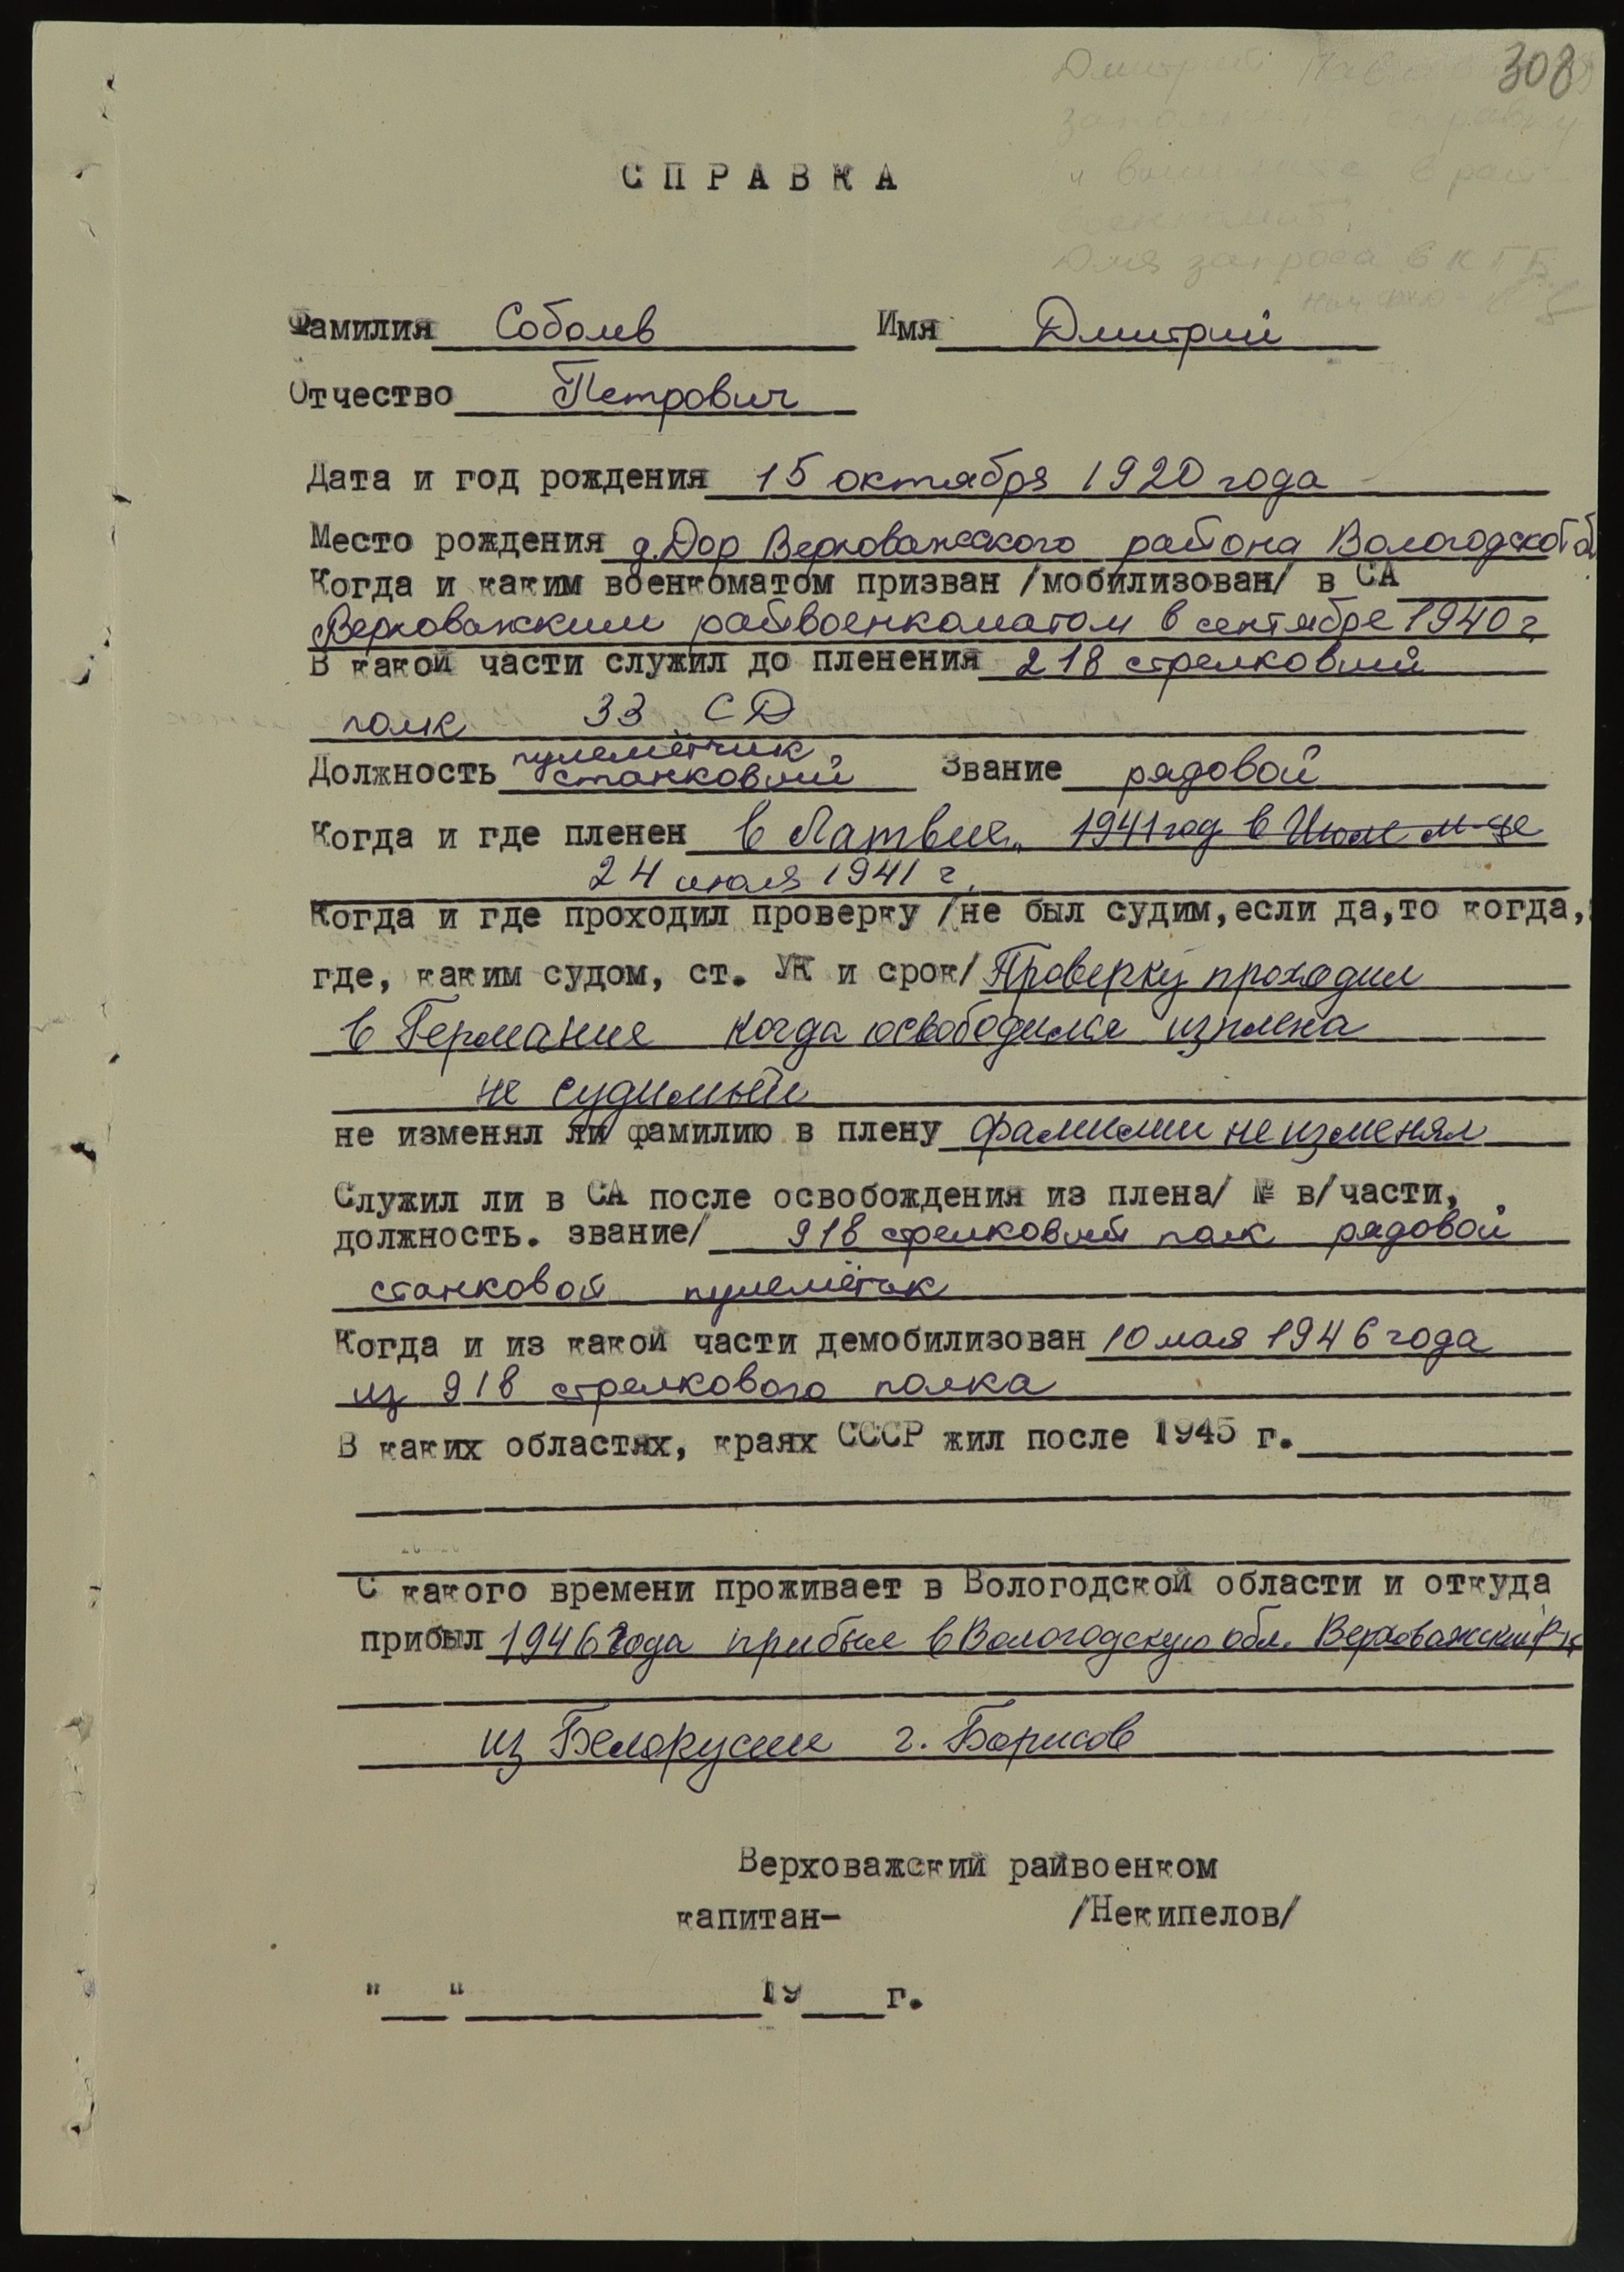 308
Дмитрий
заполните справку
и в рай-
военкомат.
Для запроса в КГБ
СПРАВКА
Фамилия Соболев Имя Дмитрий
Отчество Петрович
Дата и год рождения 15 октября 1920 года
Место рождения д.Дор Верховажского района Вологодской об
Когда и каким военкоматом призван /мобилизован/ в СА
Верховажким райвоенкоматом в сентябре 1940 г.
В какой части служил до пленения 218 стрелковый
полк 33 СД
пулемётчик
Должность станковый Звание рядовой
Когда и где пленен в Латвие, 1941 год в Июле м-це
24 июля 1941 г.
Когда и где проходил проверку /не был судим,если да,то когда,
где, каким судом, ст. УК и срок/ Проверку проходил
в Германие когда освободился из плена
не судимый
не изменял ли фамилию в плену фамилии не изменял
Служил ли в СА после освобождения из плена/ № в/части,
должность. звание/ 918 стрелковый полк рядовой
станковой пулемётчик
Когда и из какой части демобилизован 10 мая 1946 года
из 918 стрелкового полка
В каких областях, краях СССР жил после 1945 г.
С какого времени проживает в Вологодской области и откуда
прибыл 1946 года прибыл в Вологодскую обл. Верховажский р-н
из Белорусии г. Борисов
Верховажский райвоенком
капитан- /Некипелов/
"___"__________19___г.